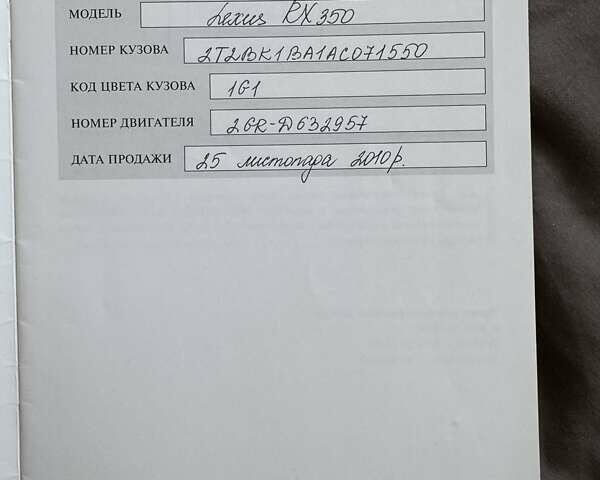 МОДЕЛЬ Lexus RX350
НОМЕР КУЗОВА 2T2BK1BA1AC071550
КОД ЦВЕТА КУЗОВА 1G1
НОМЕР ДВИГАТЕЛЯ 2GR-D632957
ДАТА ПРОДАЖИ 25 листопада 2010р.